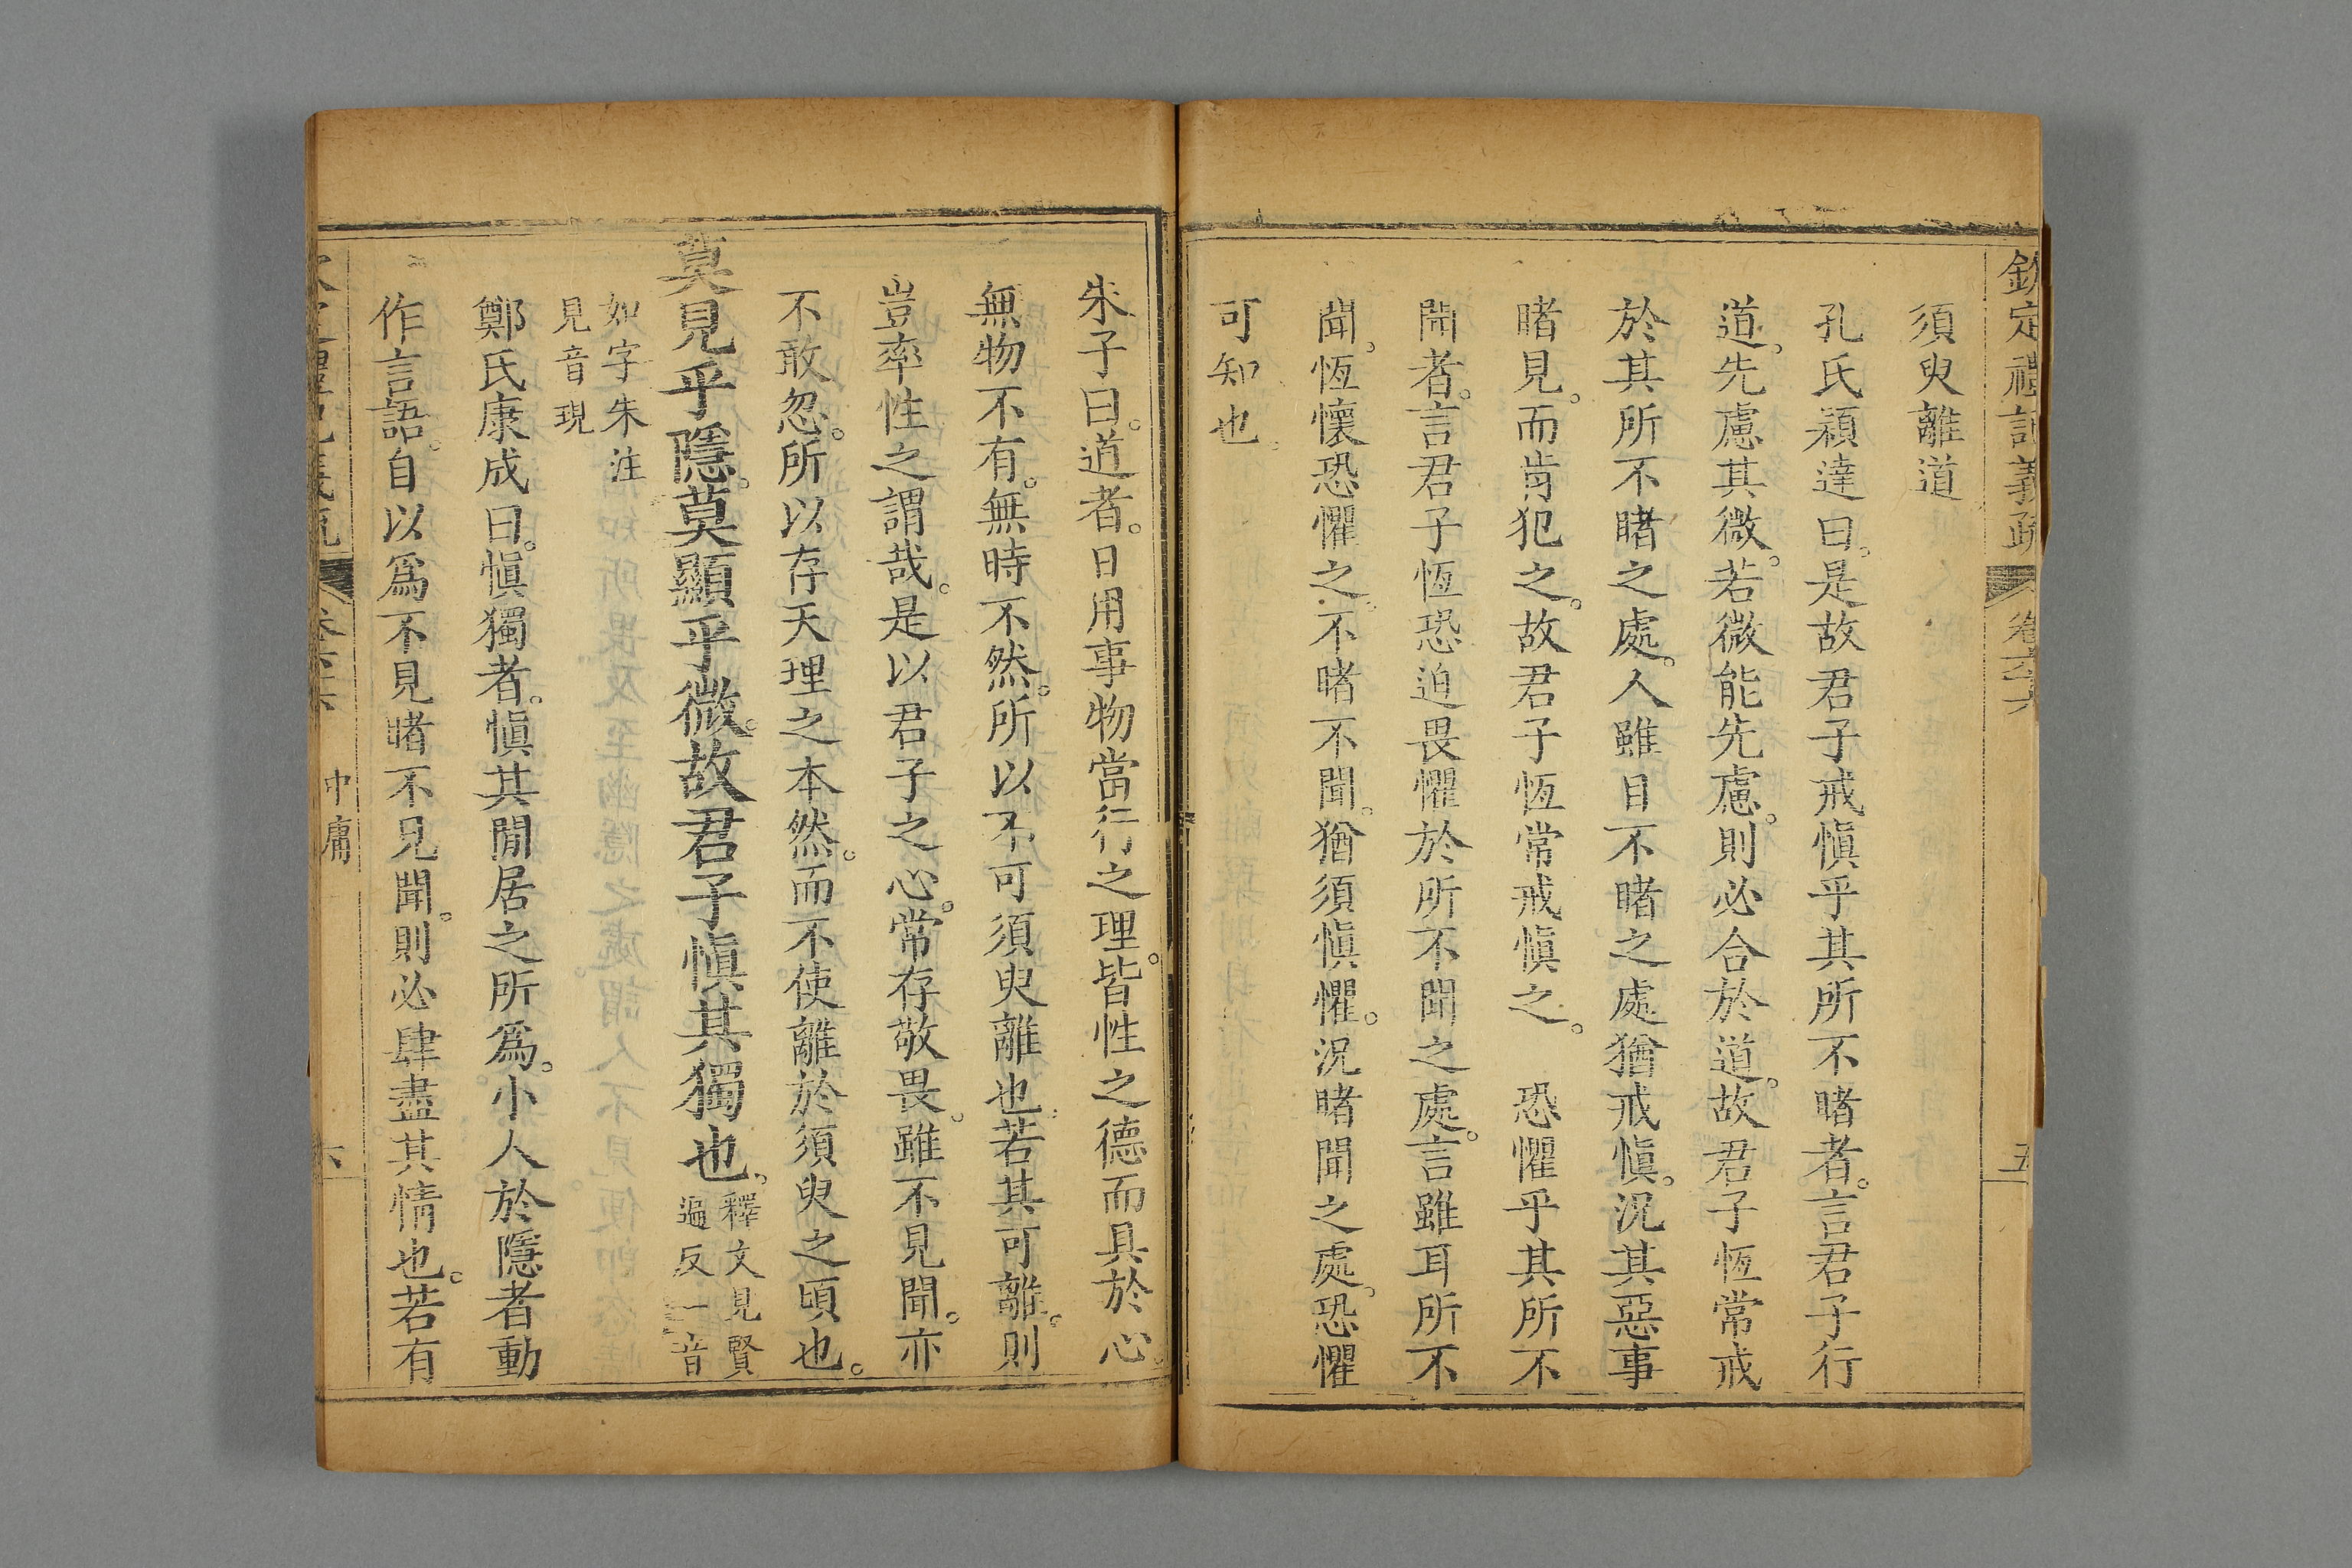 欽定禮記義疏 卷六十六 五
須臾離道
孔氏穎達曰。是故君子戒愼乎其所不睹者。言君子行
道。先慮其微。若微能先慮。則必合於道。故君子恆常戒
於其所不睹之處。人雖目不睹之處猶戒愼。況其惡事
睹見。而肯犯之。故君子恆常戒愼之。 恐懼乎其所不
聞者。言君子恆恐迫畏懼於所不聞之處。言雖耳所不
聞。恆懷恐懼之。不睹不聞。猶須愼懼。況睹聞之處。恐懼
可知也。
朱子曰。道者。日用事物當行之理。皆性之德而具於心。
無物不有。無時不然。所以不可須臾離也。若其可離。則
豈率性之謂哉。是以君子之心。常存敬畏。雖不見聞。亦
不敢忽。所以存天理之本然。而不使離於須臾之頃也。
莫見乎隱。莫顯乎微。故君子愼其獨也。釋文見賢
遍反一音
如字朱注
見音現
鄭氏康成曰。愼獨者。愼其閒居之所爲。小人於隱者動
作言語。自以爲不見睹不見聞。則必肆盡其情也。若有
中庸 六